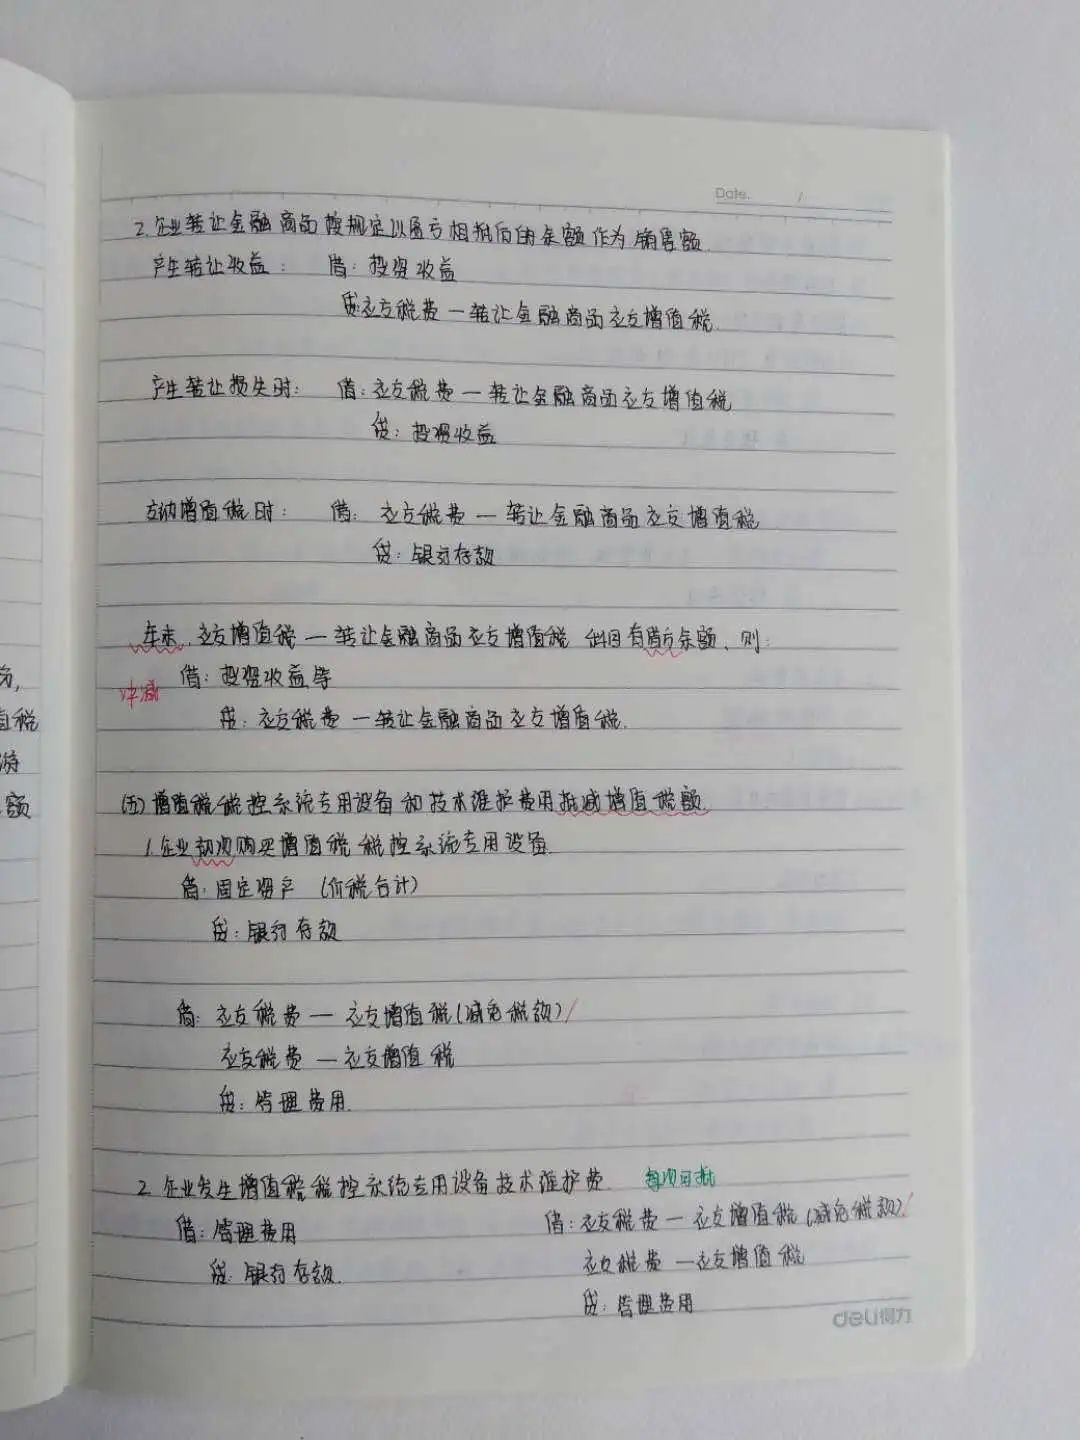 Date. /
2. 企业转让金融商品按规定以盈亏相抵后的余额作为销售额.
产生转让收益: 借: 投资收益
贷: 应交税费—转让金融商品应交增值税.
产生转让损失时: 借: 应交税费—转让金融商品应交增值税
贷: 投资收益
交纳增值税时: 借: 应交税费—转让金融商品应交增值税
贷: 银行存款
年末, 应交增值税—转让金融商品应交增值税 科目有借方余额, 则:
借: 投资收益等
冲减
贷: 应交税费—转让金融商品应交增值税.
(五) 增值税税控系统专用设备和技术维护费用抵减增值税额.
1. 企业初次购买增值税税控系统专用设备.
借: 固定资产 (价税合计)
贷: 银行存款
借: 应交税费—应交增值税(减免税款)/
应交税费—应交增值税
贷: 管理费用.
2. 企业发生增值税税控系统专用设备技术维护费. 每次可抵
借: 管理费用 借: 应交税费—应交增值税(减免税款)/
贷: 银行存款. 应交税费—应交增值税
贷: 管理费用
deli得力
值税
额